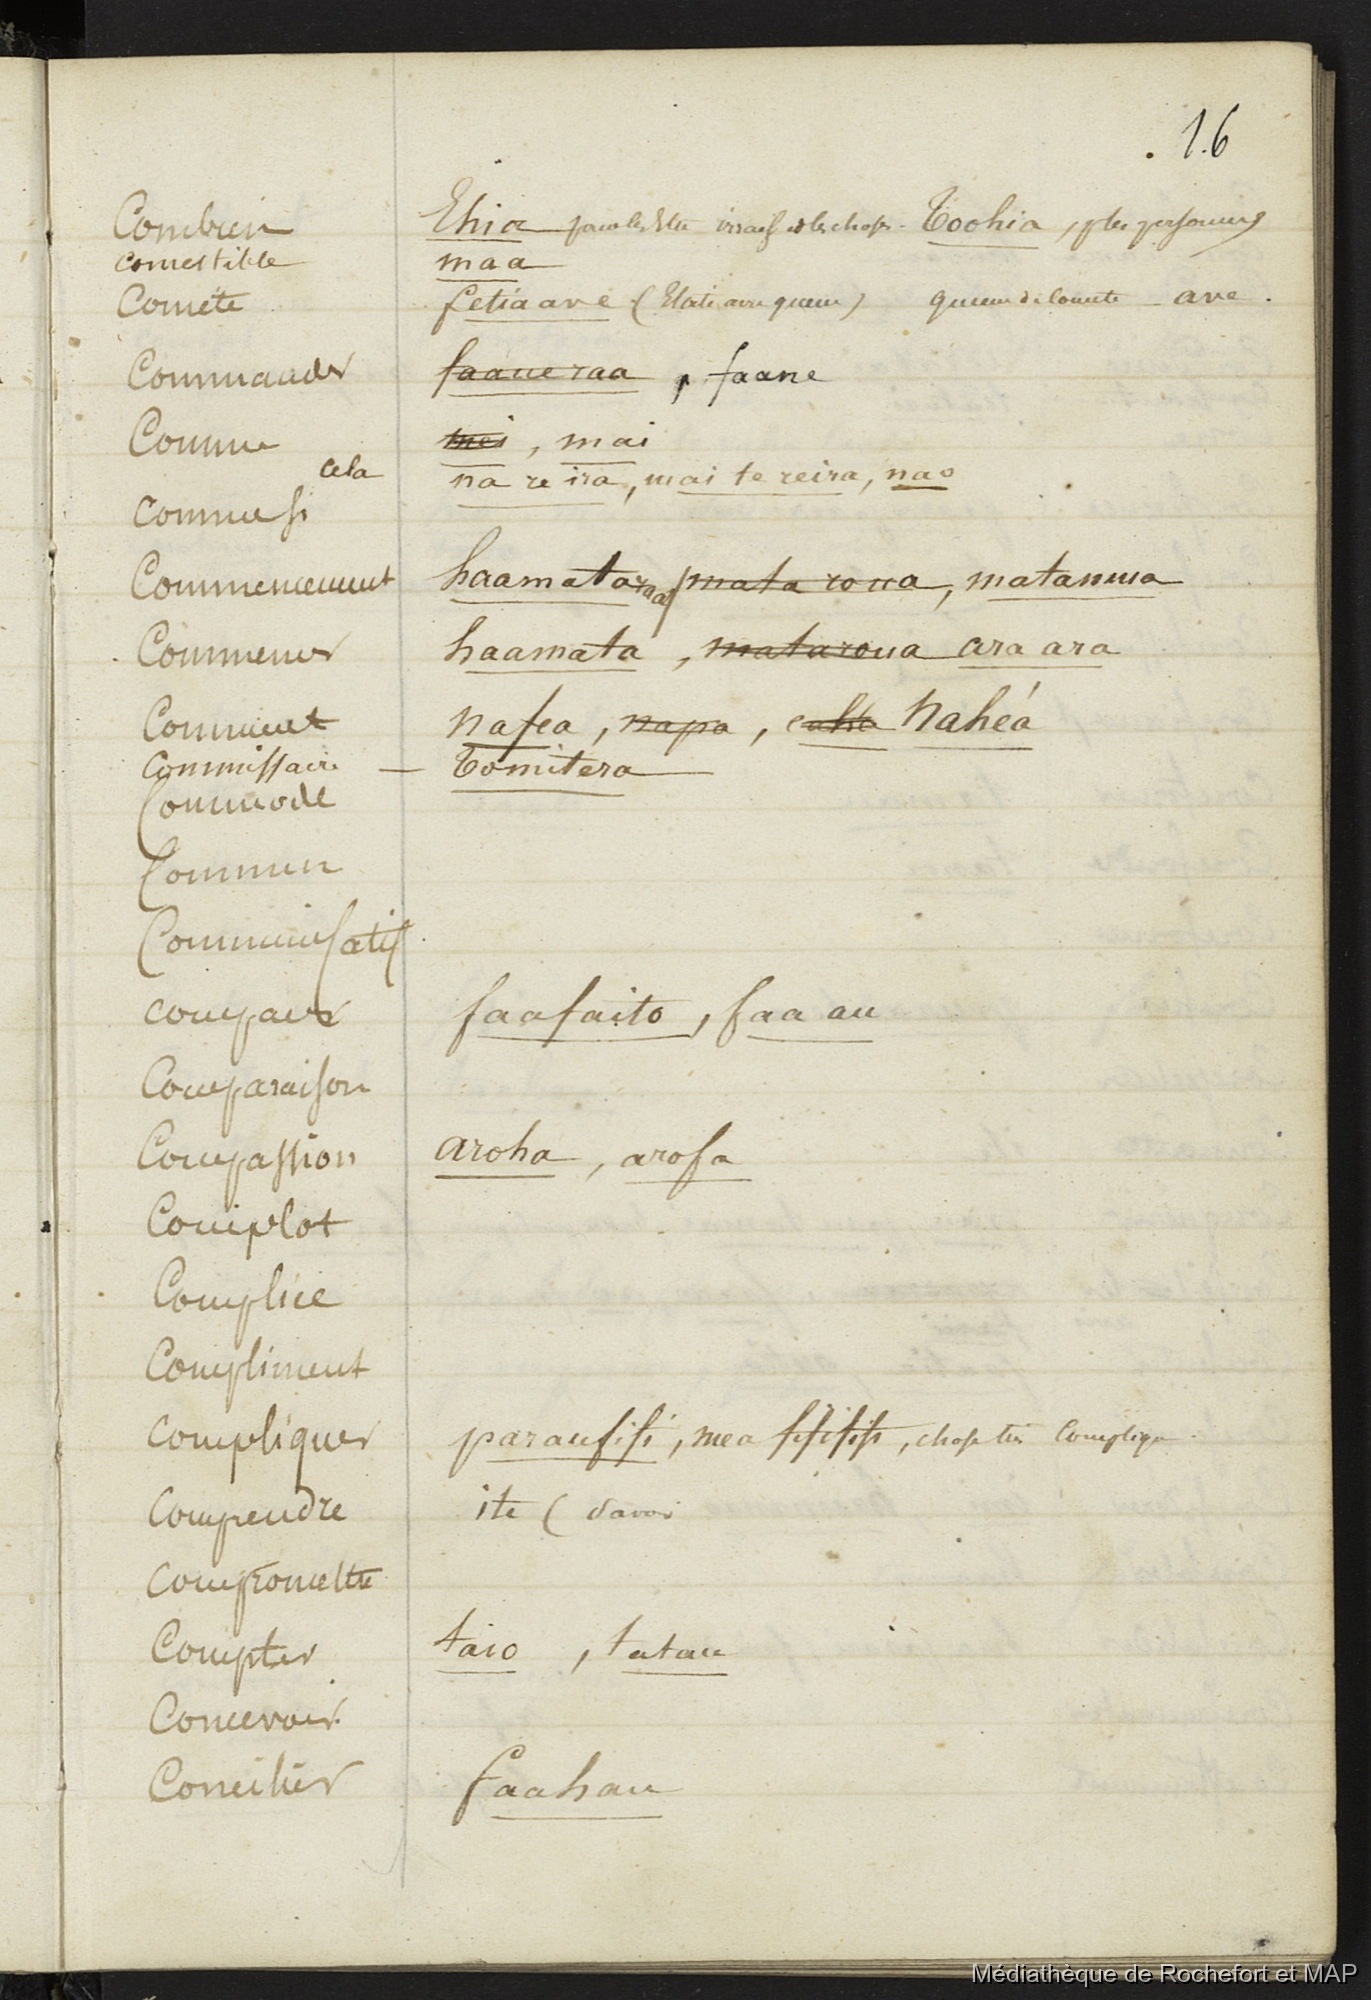 16
Combien Ehia pour les choses. Toohia, p les personnes
comestible maa
Comète fetiaave (Etoile avec queue) queue de Comète ave.
Commander faaueraa, faaue
Comme mei, mai
cela na re ira, mai te reira, nao
Comme si
Commencement haamataraa, mata roua, matamua
Commencer haamata, mataroua ara ara
Comment nafea, napa, nahéa
Commissaire — Tomitera
Commode
Commun
Communicatif
comparer faafaito, faa au
Comparaison
Compassion aroha, arofa
Complot
Complice
Compliment
Compliquer paraufifi, mea fifififi, chose très Compliqu
Comprendre ite (Savoir
Compromettre
Compter taio, tatau
Concevoir
Concilier faahau
Médiathèque de Rochefort et MAP